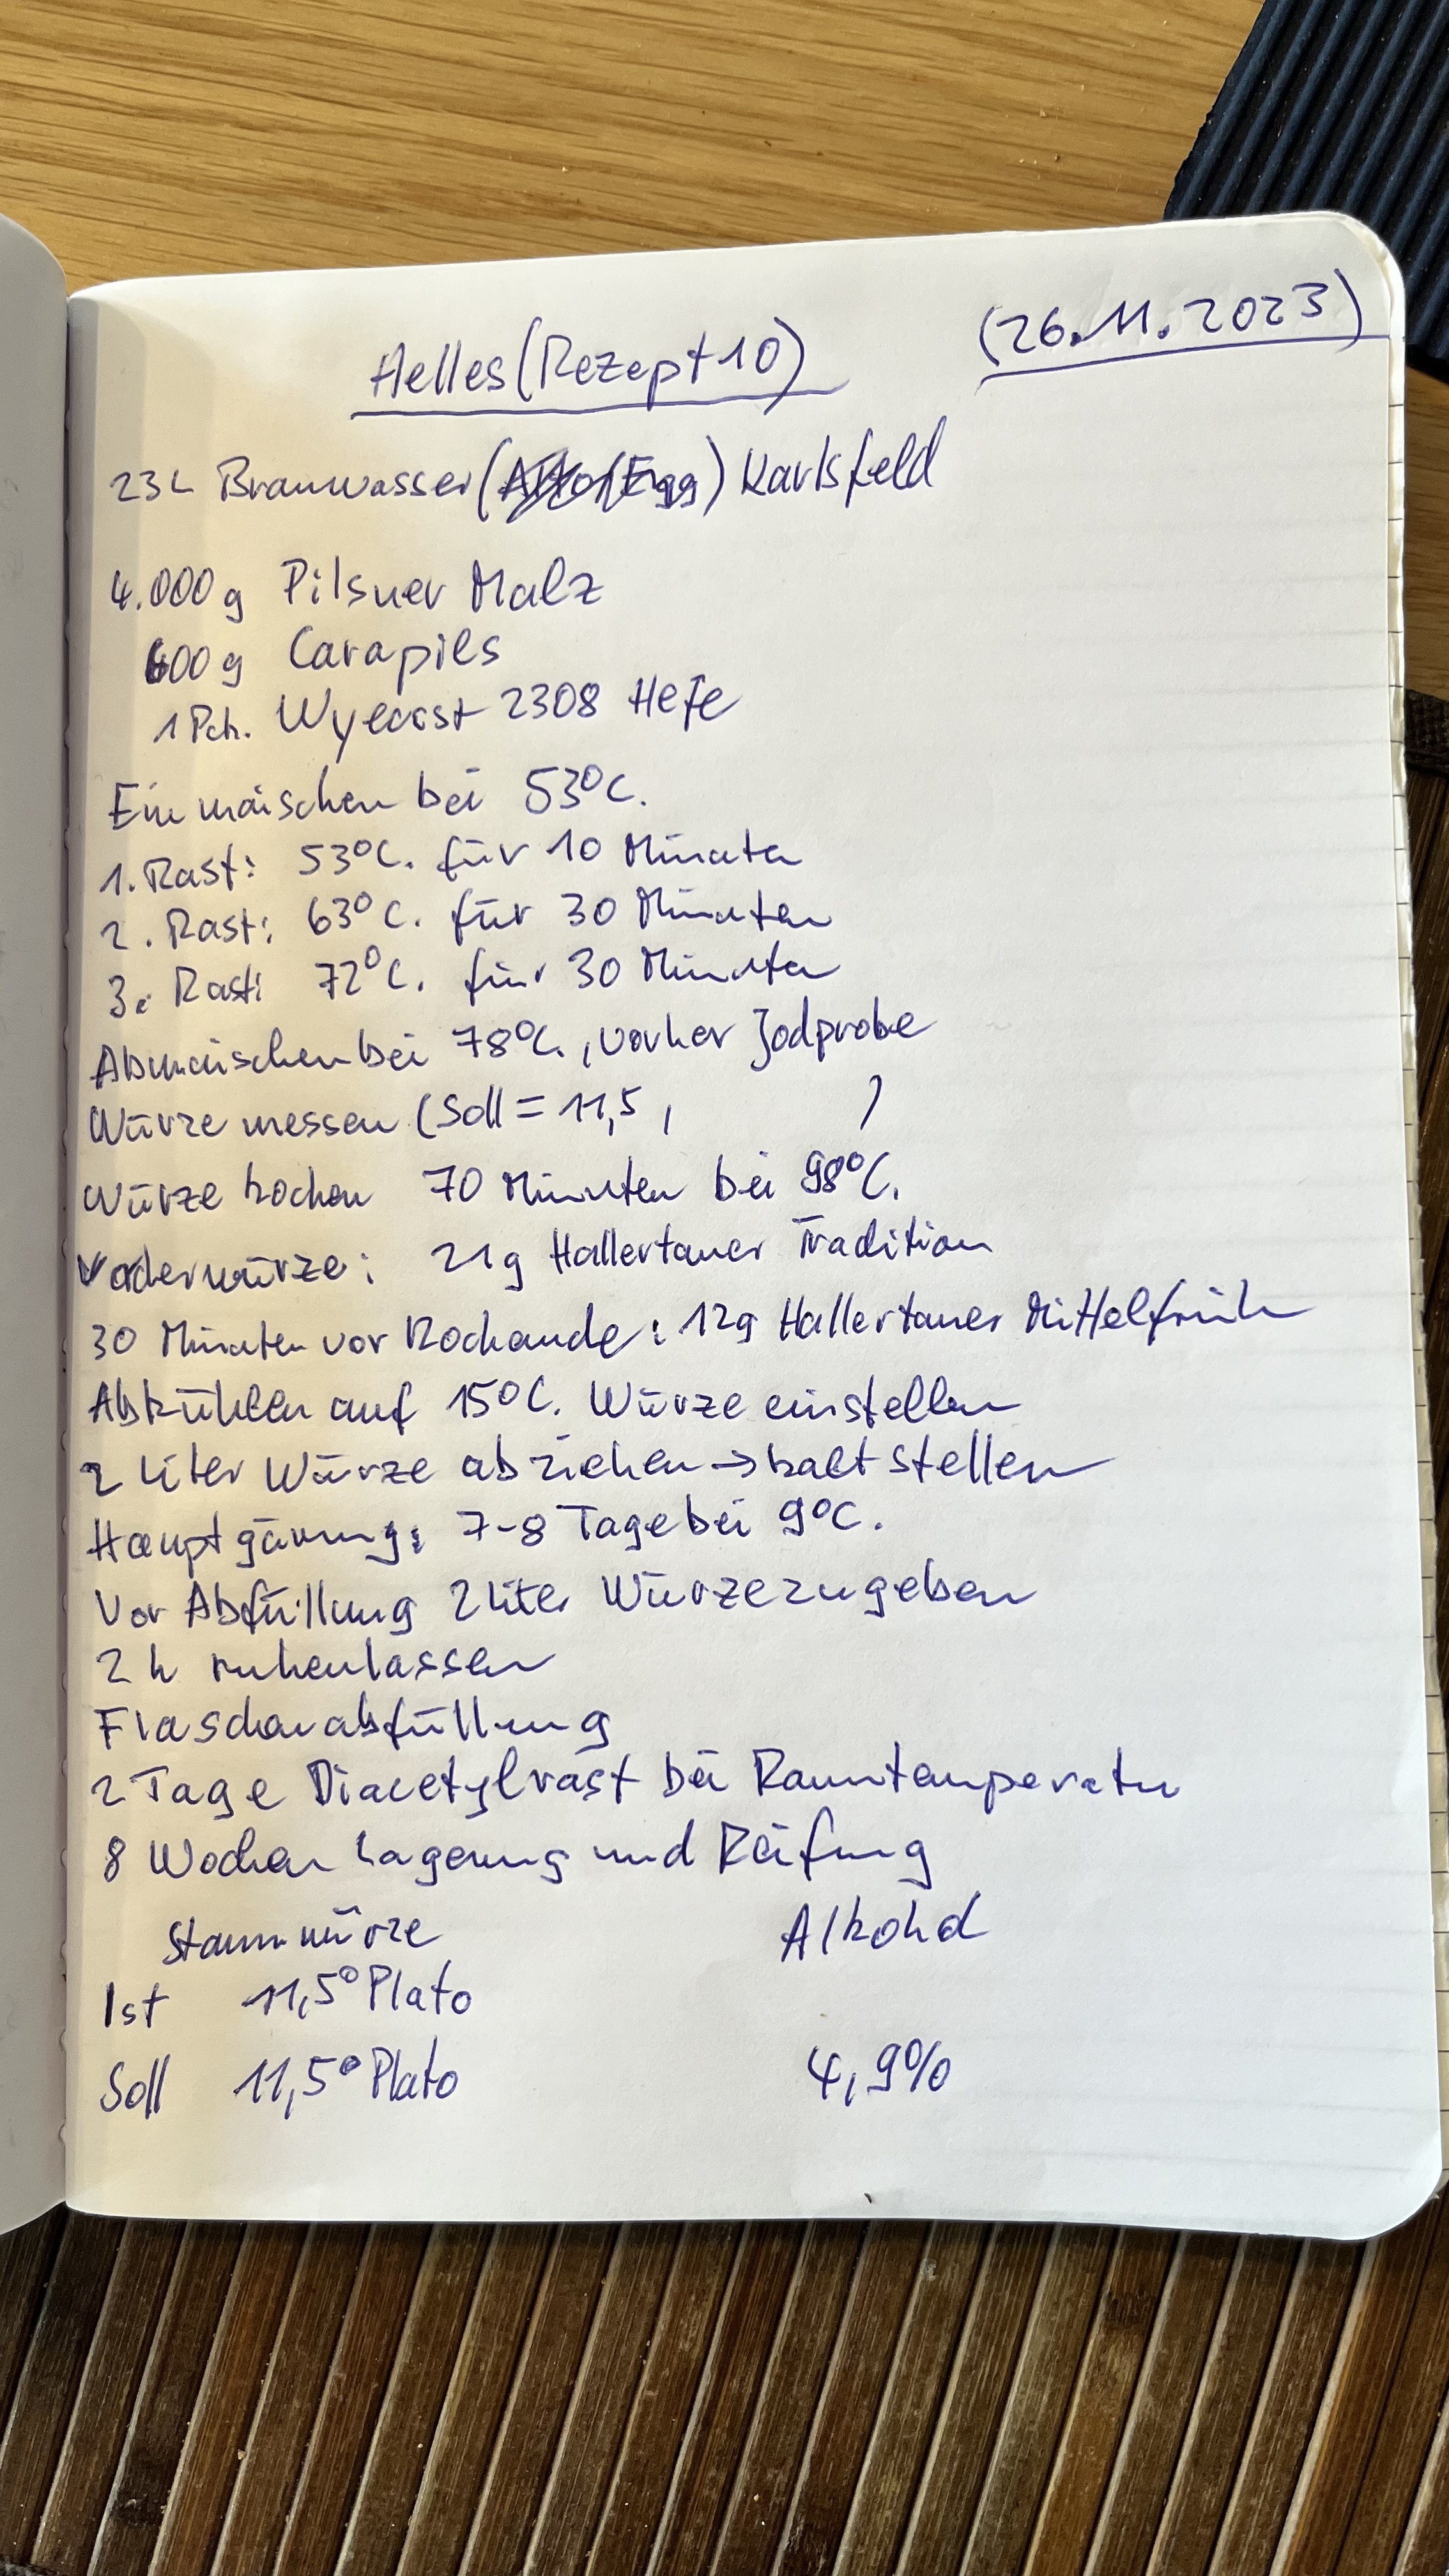 Helles (Rezept 10) (26.11.2023)
23L Brauwasser ( Egg) Karlsfeld
4.000 g Pilsner Malz
600 g Carapils
1 Pck. Wyeast 2308 Hefe
Einmaischen bei 53°C.
1. Rast: 53°C. für 10 Minuten
2. Rast: 63°C. für 30 Minuten
3. Rast: 72°C. für 30 Minuten
Abmaischen bei 78°C., vorher Jodprobe
Würze messen (Soll = 11,5, )
Würze kochen 70 Minuten bei 98°C.
Vorderwürze: 21g Hallertauer Tradition
30 Minuten vor Kochende: 12g Hallertauer Mittelfrüh
Abkühlen auf 15°C. Würze einstellen
2 Liter Würze abziehen → kalt stellen
Hauptgärung: 7-8 Tage bei 9°C.
Vor Abfüllung 2 Liter Würze zugeben
2 h ruhen lassen
Flaschenabfüllung
2 Tage Diacetylrast bei Raumtemperatur
8 Wochen Lagerung und Reifung
Stammwürze Alkohol
Ist 11,5° Plato
Soll 11,5° Plato 4,9%